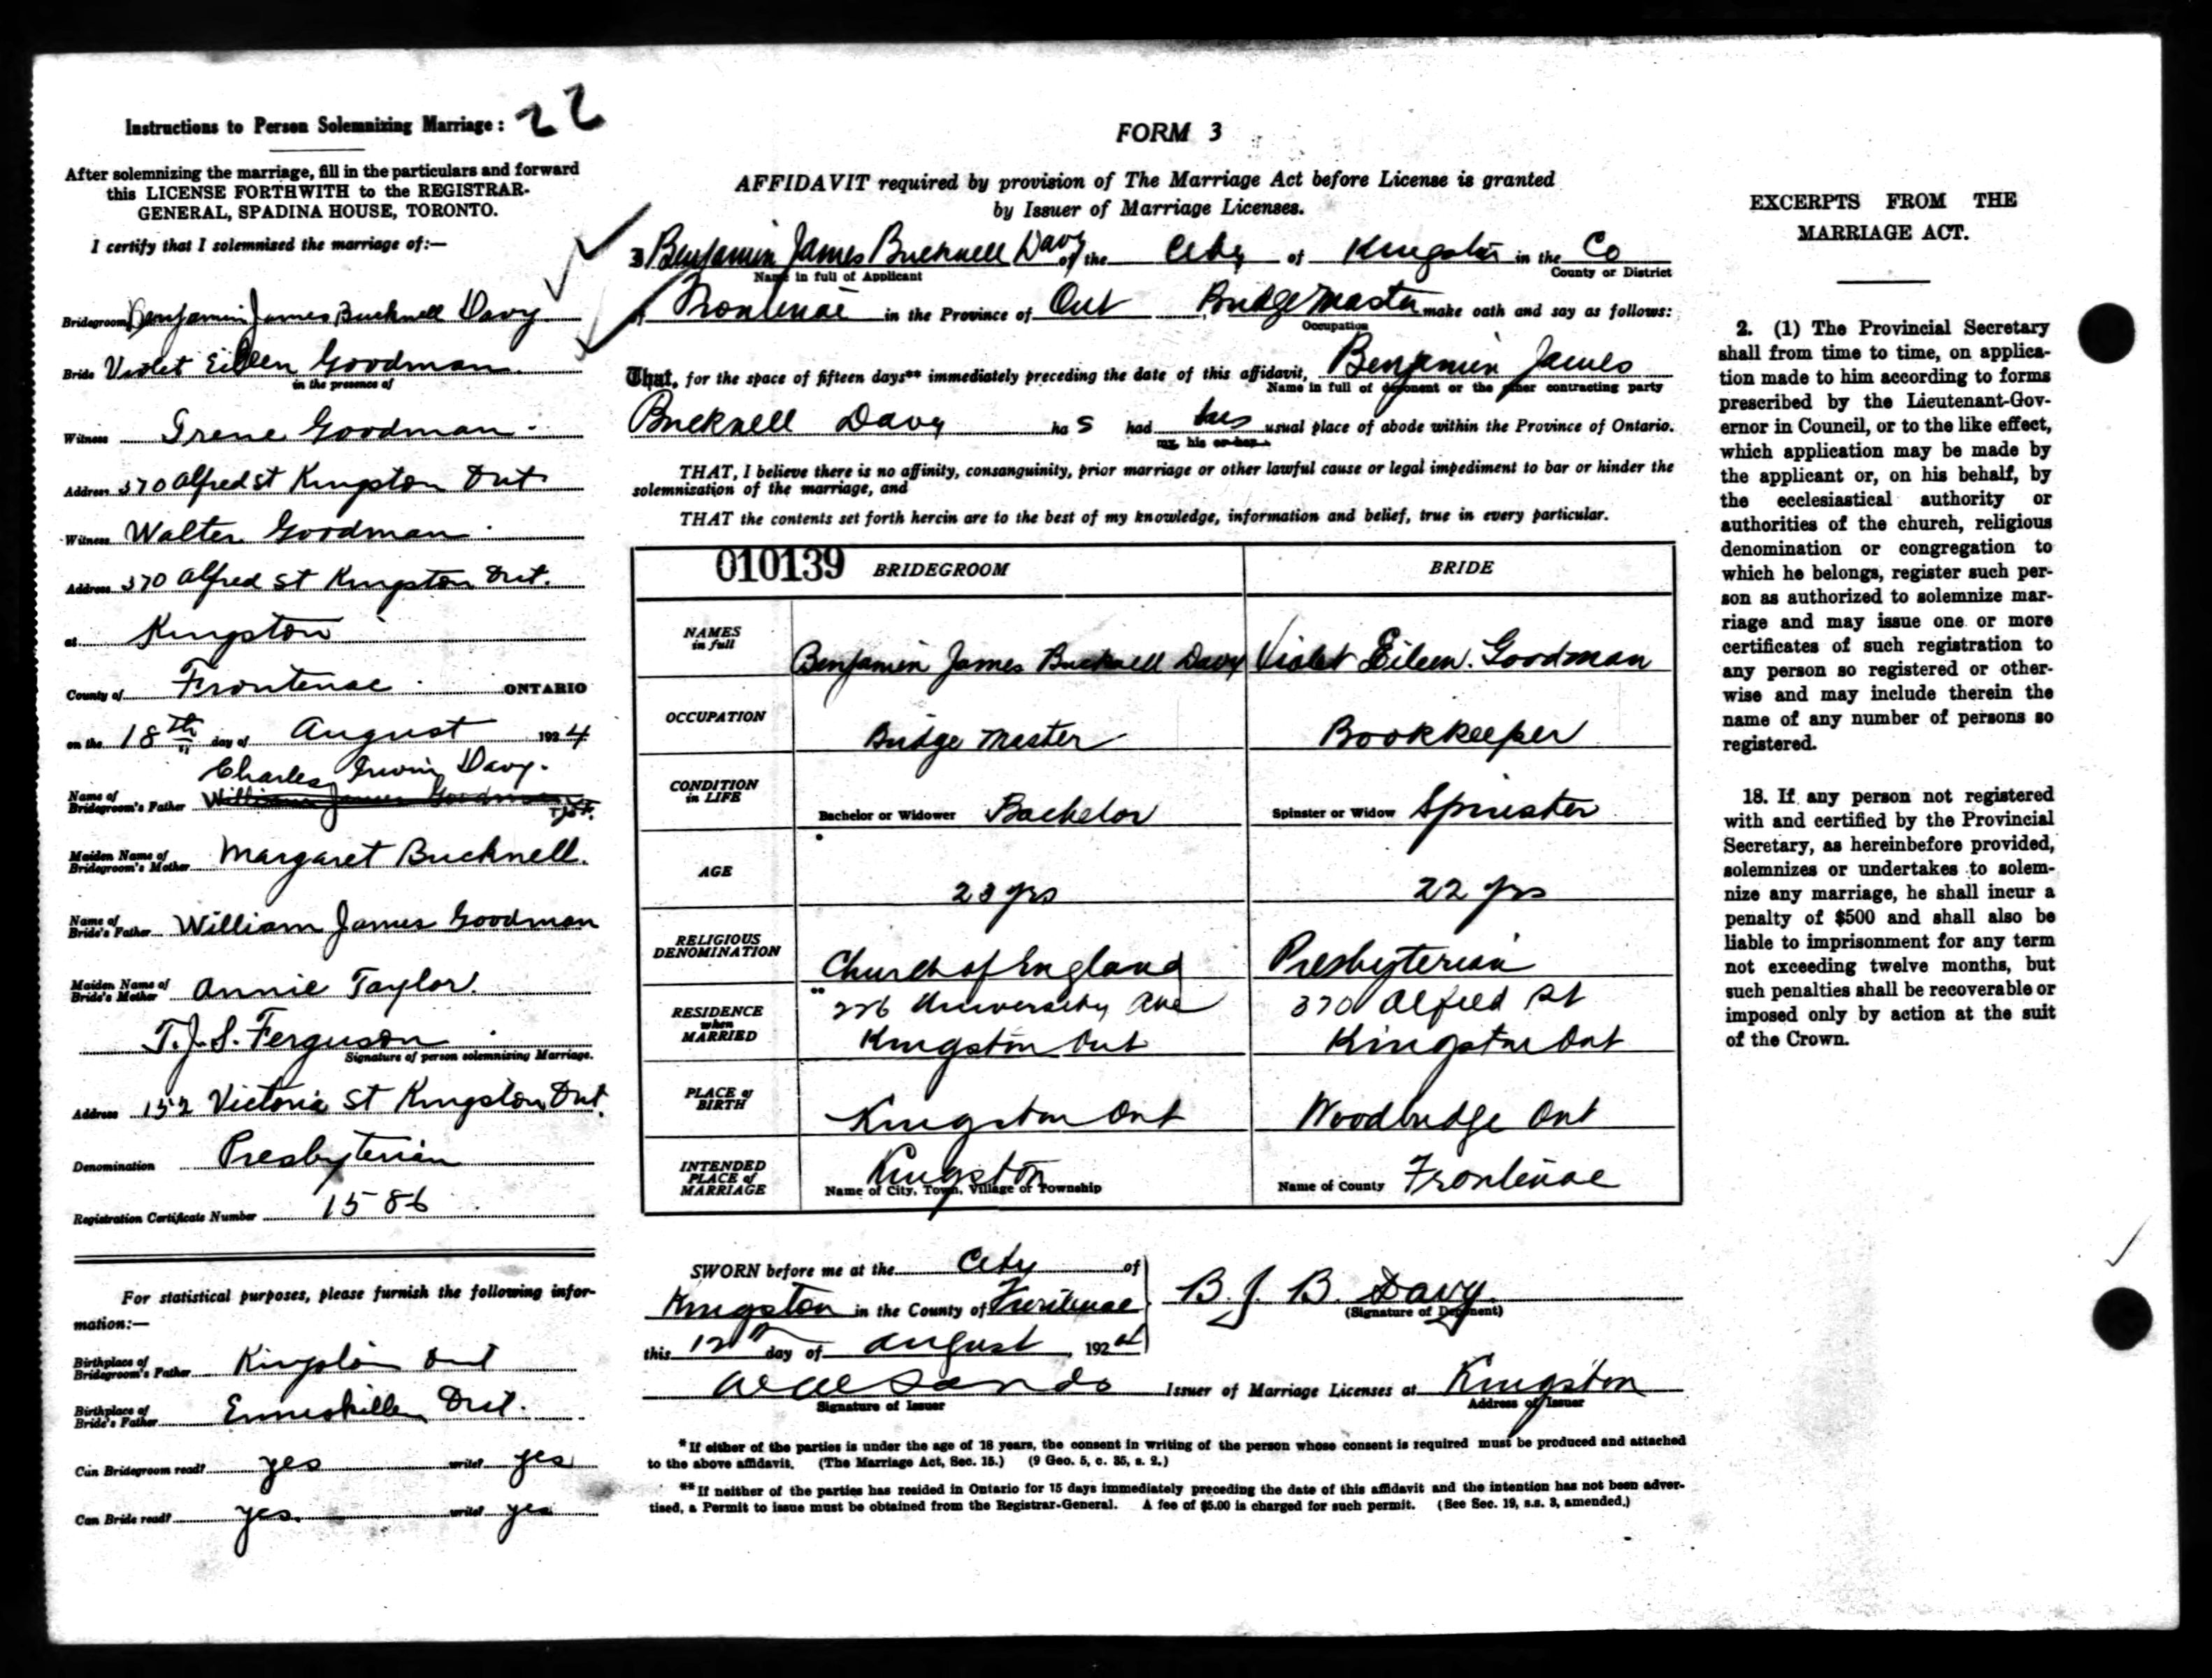 Instructions to Person Solemnizing Marriage: 22
After solemnizing the marriage, fill in the particulars and forward
this LICENSE FORTHWITH to the REGISTRAR-
GENERAL, SPADINA HOUSE, TORONTO.
I certify that I solemnized the marriage of:—
Bridegroom Benjamin James Bucknell Davy
Bride Violet Eileen Goodman
in the presence of
Witness Irene Goodman
Address 370 Alfred St Kingston Ont
Witness Walter Goodman
Address 370 Alfred St Kingston Ont.
at Kingston
County of Frontenac ONTARIO
on the 18th day of August 1924
Charles Irwin Davy.
Name of
Bridegroom's Father William James Goodman
Maiden Name of
Bridegroom's Mother Margaret Bucknell.
Name of
Bride's Father William James Goodman
Maiden Name of
Bride's Mother Annie Taylor.
T.J.S. Ferguson
Signature of person solemnizing Marriage.
Address 152 Victoria St Kingston, Ont.
Denomination Presbyterian
Registration Certificate Number 1586
For statistical purposes, please furnish the following infor-
mation:—
Birthplace of
Bridegroom's Father Kingston Ont
Birthplace of
Bride's Father Enniskillen Ont.
Can Bridegroom read? yes write? yes
Can Bride read? yes. write? yes
FORM 3
AFFIDAVIT required by provision of The Marriage Act before License is granted
by Issuer of Marriage Licenses.
I Benjamin James Bucknell Davy of the City of Kingston in the Co
Name in full of Applicant County or District
Frontenac in the Province of Ont Bridge Master make oath and say as follows:
Occupation
That, for the space of fifteen days** immediately preceding the date of this affidavit, Benjamin James
Name in full of deponent or the other contracting party
Bucknell Davy has had his usual place of abode within the Province of Ontario.
my, his or her
THAT, I believe there is no affinity, consanguinity, prior marriage or other lawful cause or legal impediment to bar or hinder the
solemnization of the marriage, and
THAT the contents set forth herein are to the best of my knowledge, information and belief, true in every particular.
010139 BRIDEGROOM BRIDE
NAMES
in full
Benjamin James Bucknell Davy Violet Eileen Goodman
OCCUPATION
Bridge Master Bookkeeper
CONDITION
in LIFE
Bachelor or Widower Bachelor Spinster or Widow Spinster
AGE
23 yrs 22 yrs
RELIGIOUS
DENOMINATION
Church of England Presbyterian
RESIDENCE
when
MARRIED
226 University Ave 370 Alfred St
Kingston Ont Kingston Ont
PLACE of
BIRTH
Kingston Ont Woodbridge Ont
INTENDED
PLACE of
MARRIAGE
Kingston
Name of City, Town, Village or Township Name of County Frontenac
SWORN before me at the City of
Kingston in the County of Frontenac
this 12th day of August, 1924
B. J. B. Davy.
(Signature of Deponent)
Sands Issuer of Marriage Licenses at Kingston
Signature of Issuer Address of Issuer
*If either of the parties is under the age of 18 years, the consent in writing of the person whose consent is required must be produced and attached
to the above affidavit. (The Marriage Act, Sec. 15.) (9 Geo. 5, c. 35, s. 2.)
**If neither of the parties has resided in Ontario for 15 days immediately preceding the date of this affidavit and the intention has not been adver-
tised, a Permit to issue must be obtained from the Registrar-General. A fee of $5.00 is charged for such permit. (See Sec. 19, s.s. 3, amended.)
EXCERPTS FROM THE
MARRIAGE ACT.
2. (1) The Provincial Secretary
shall from time to time, on applica-
tion made to him according to forms
prescribed by the Lieutenant-Gov-
ernor in Council, or to the like effect,
which application may be made by
the applicant or, on his behalf, by
the ecclesiastical authority or
authorities of the church, religious
denomination or congregation to
which he belongs, register such per-
son as authorized to solemnize mar-
riage and may issue one or more
certificates of such registration to
any person so registered or other-
wise and may include therein the
name of any number of persons so
registered.
18. If any person not registered
with and certified by the Provincial
Secretary, as hereinbefore provided,
solemnizes or undertakes to solem-
nize any marriage, he shall incur a
penalty of $500 and shall also be
liable to imprisonment for any term
not exceeding twelve months, but
such penalties shall be recoverable or
imposed only by action at the suit
of the Crown.